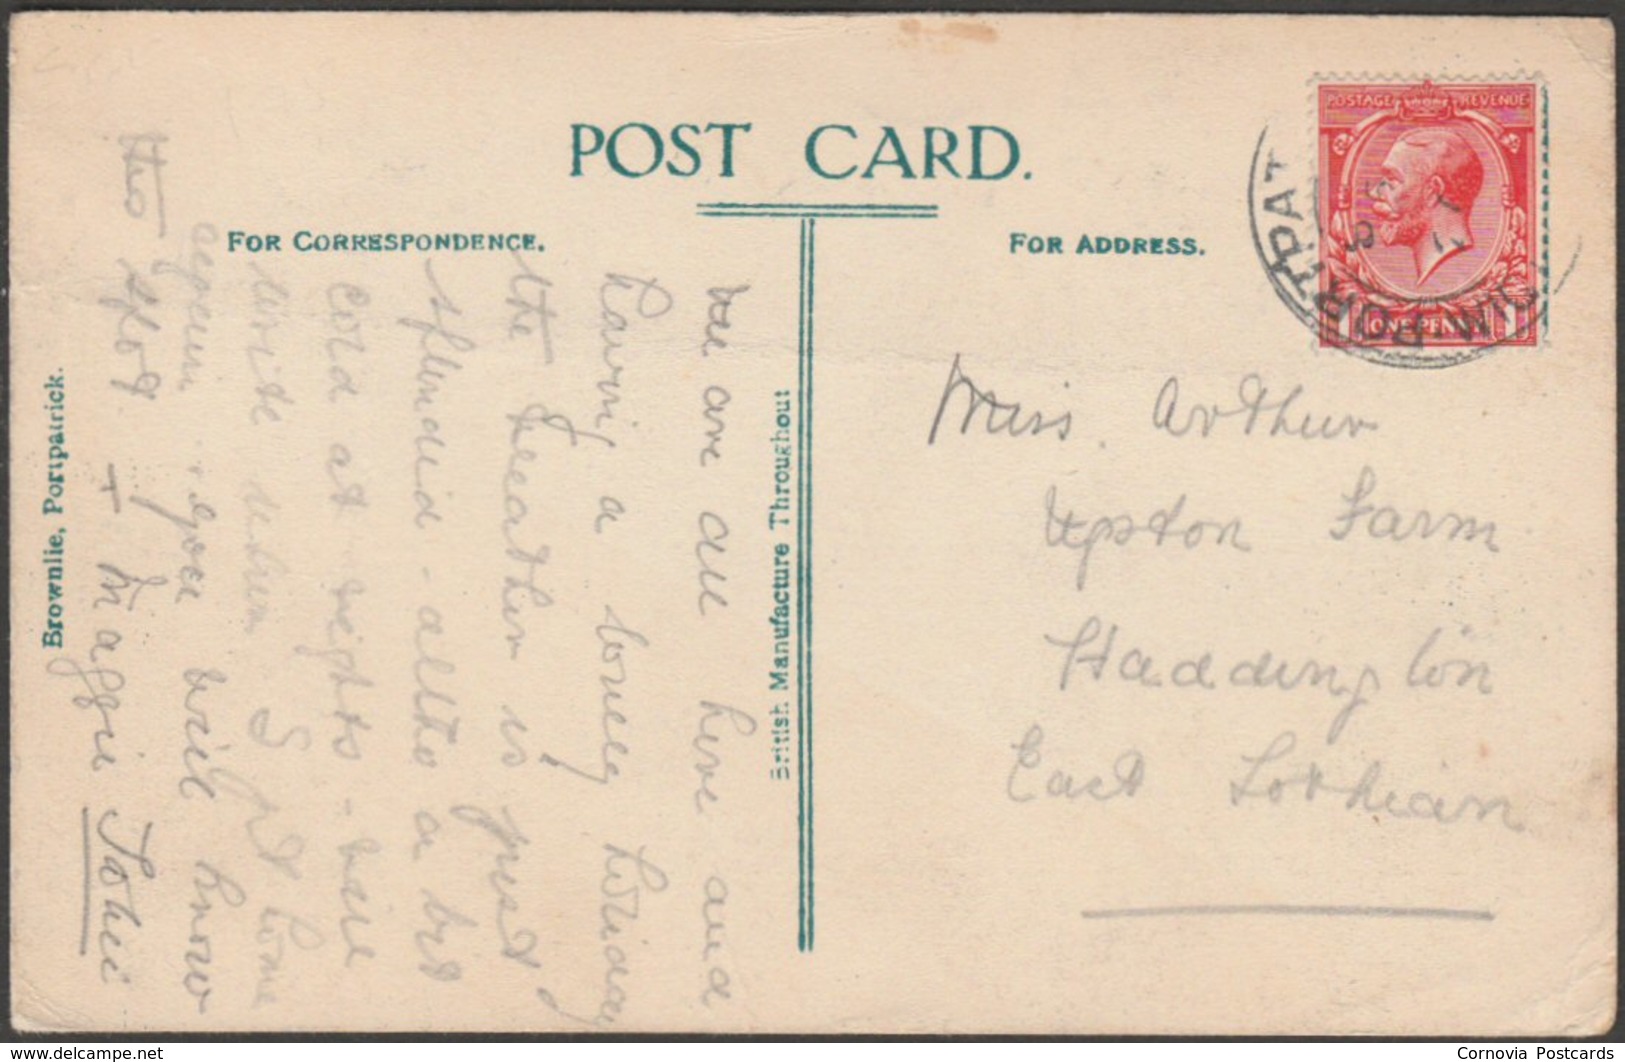 POST CARD.
FOR CORRESPONDENCE.
FOR ADDRESS.
POSTAGE REVENUE
ONE PENNY
1
PORTPAT
WI
Miss. Arthur
Upton Farm
Haddington
East Lothian
British Manufacture Throughout
Brownlie, Portpatrick.
We are all here and
having a lovely holiday
the weather is just
splendid - altho a bit
cold at nights - will
write when I get home
again. you will know
this spot - Maggie
www.delcampe.net
Cornovia Postcards